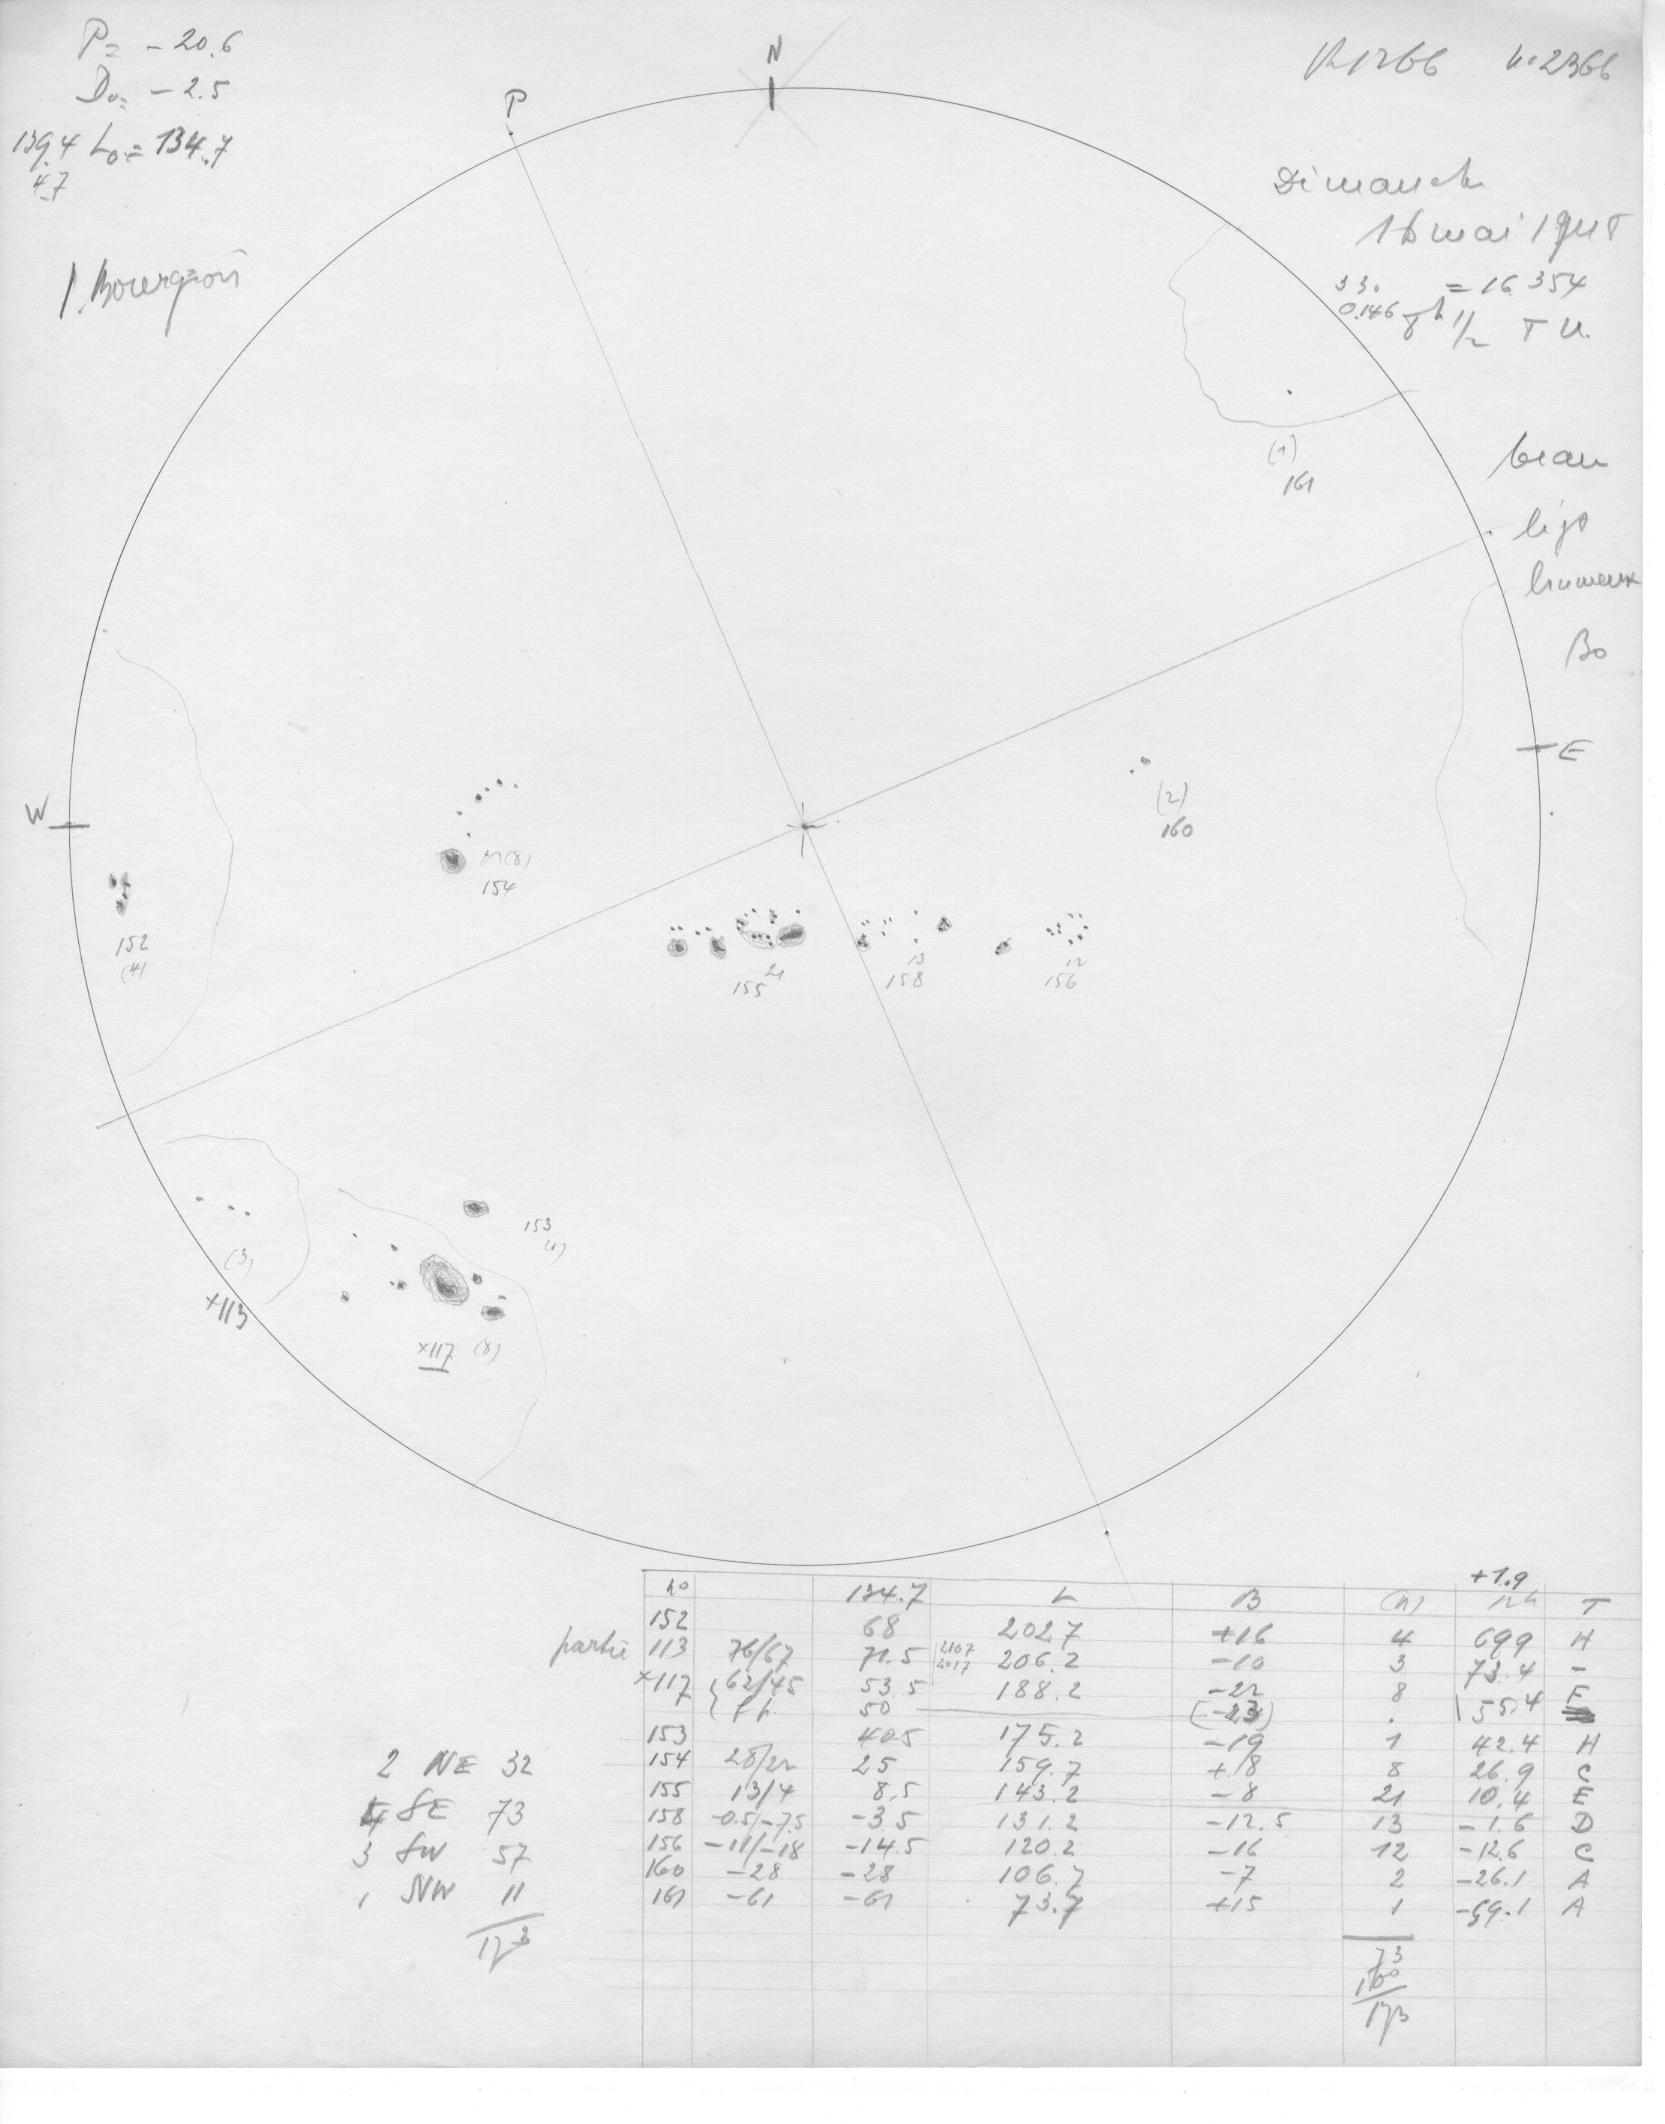 P= -20.6
D0= -2.5
139.4 L0= 134.7
4.7
Bourgeois
N
P
Dimanche
16 mai
= 16 354
0.146 8h 1/2 T U.
beau
brumeux
Bo
E
W
(1)
161
(2)
160
(8)
154
152
(4)
21
155
13
158
12
156
153
(1)
(3)
+113
×117 (8)
+1.9
134.7 L B (n) T
152 68 202.7 +16 4 69.9 H
partie 113 76/67 71.5 210.7 201.7 206.2 -10 3 73.4 -
×117 62/45 53.5 188.2 -22 8 55.4 E
50 (-23)
153 40.5 175.2 -19 1 42.4 H
154 28/22 25 159.7 +8 8 26.9 C
155 13/4 8.5 143.2 -8 21 10.4 E
158 -0.5/-7.5 -3.5 131.2 -12.5 13 -1.6 D
156 -11/-18 -14.5 120.2 -16 12 -12.6 C
160 -28 -28 106.7 -7 2 -26.1 A
161 -61 -61 73.7 +15 1 -59.1 A
73
100
173
2 NE 32
4 SE 73
3 SW 57
1 NW 11
173